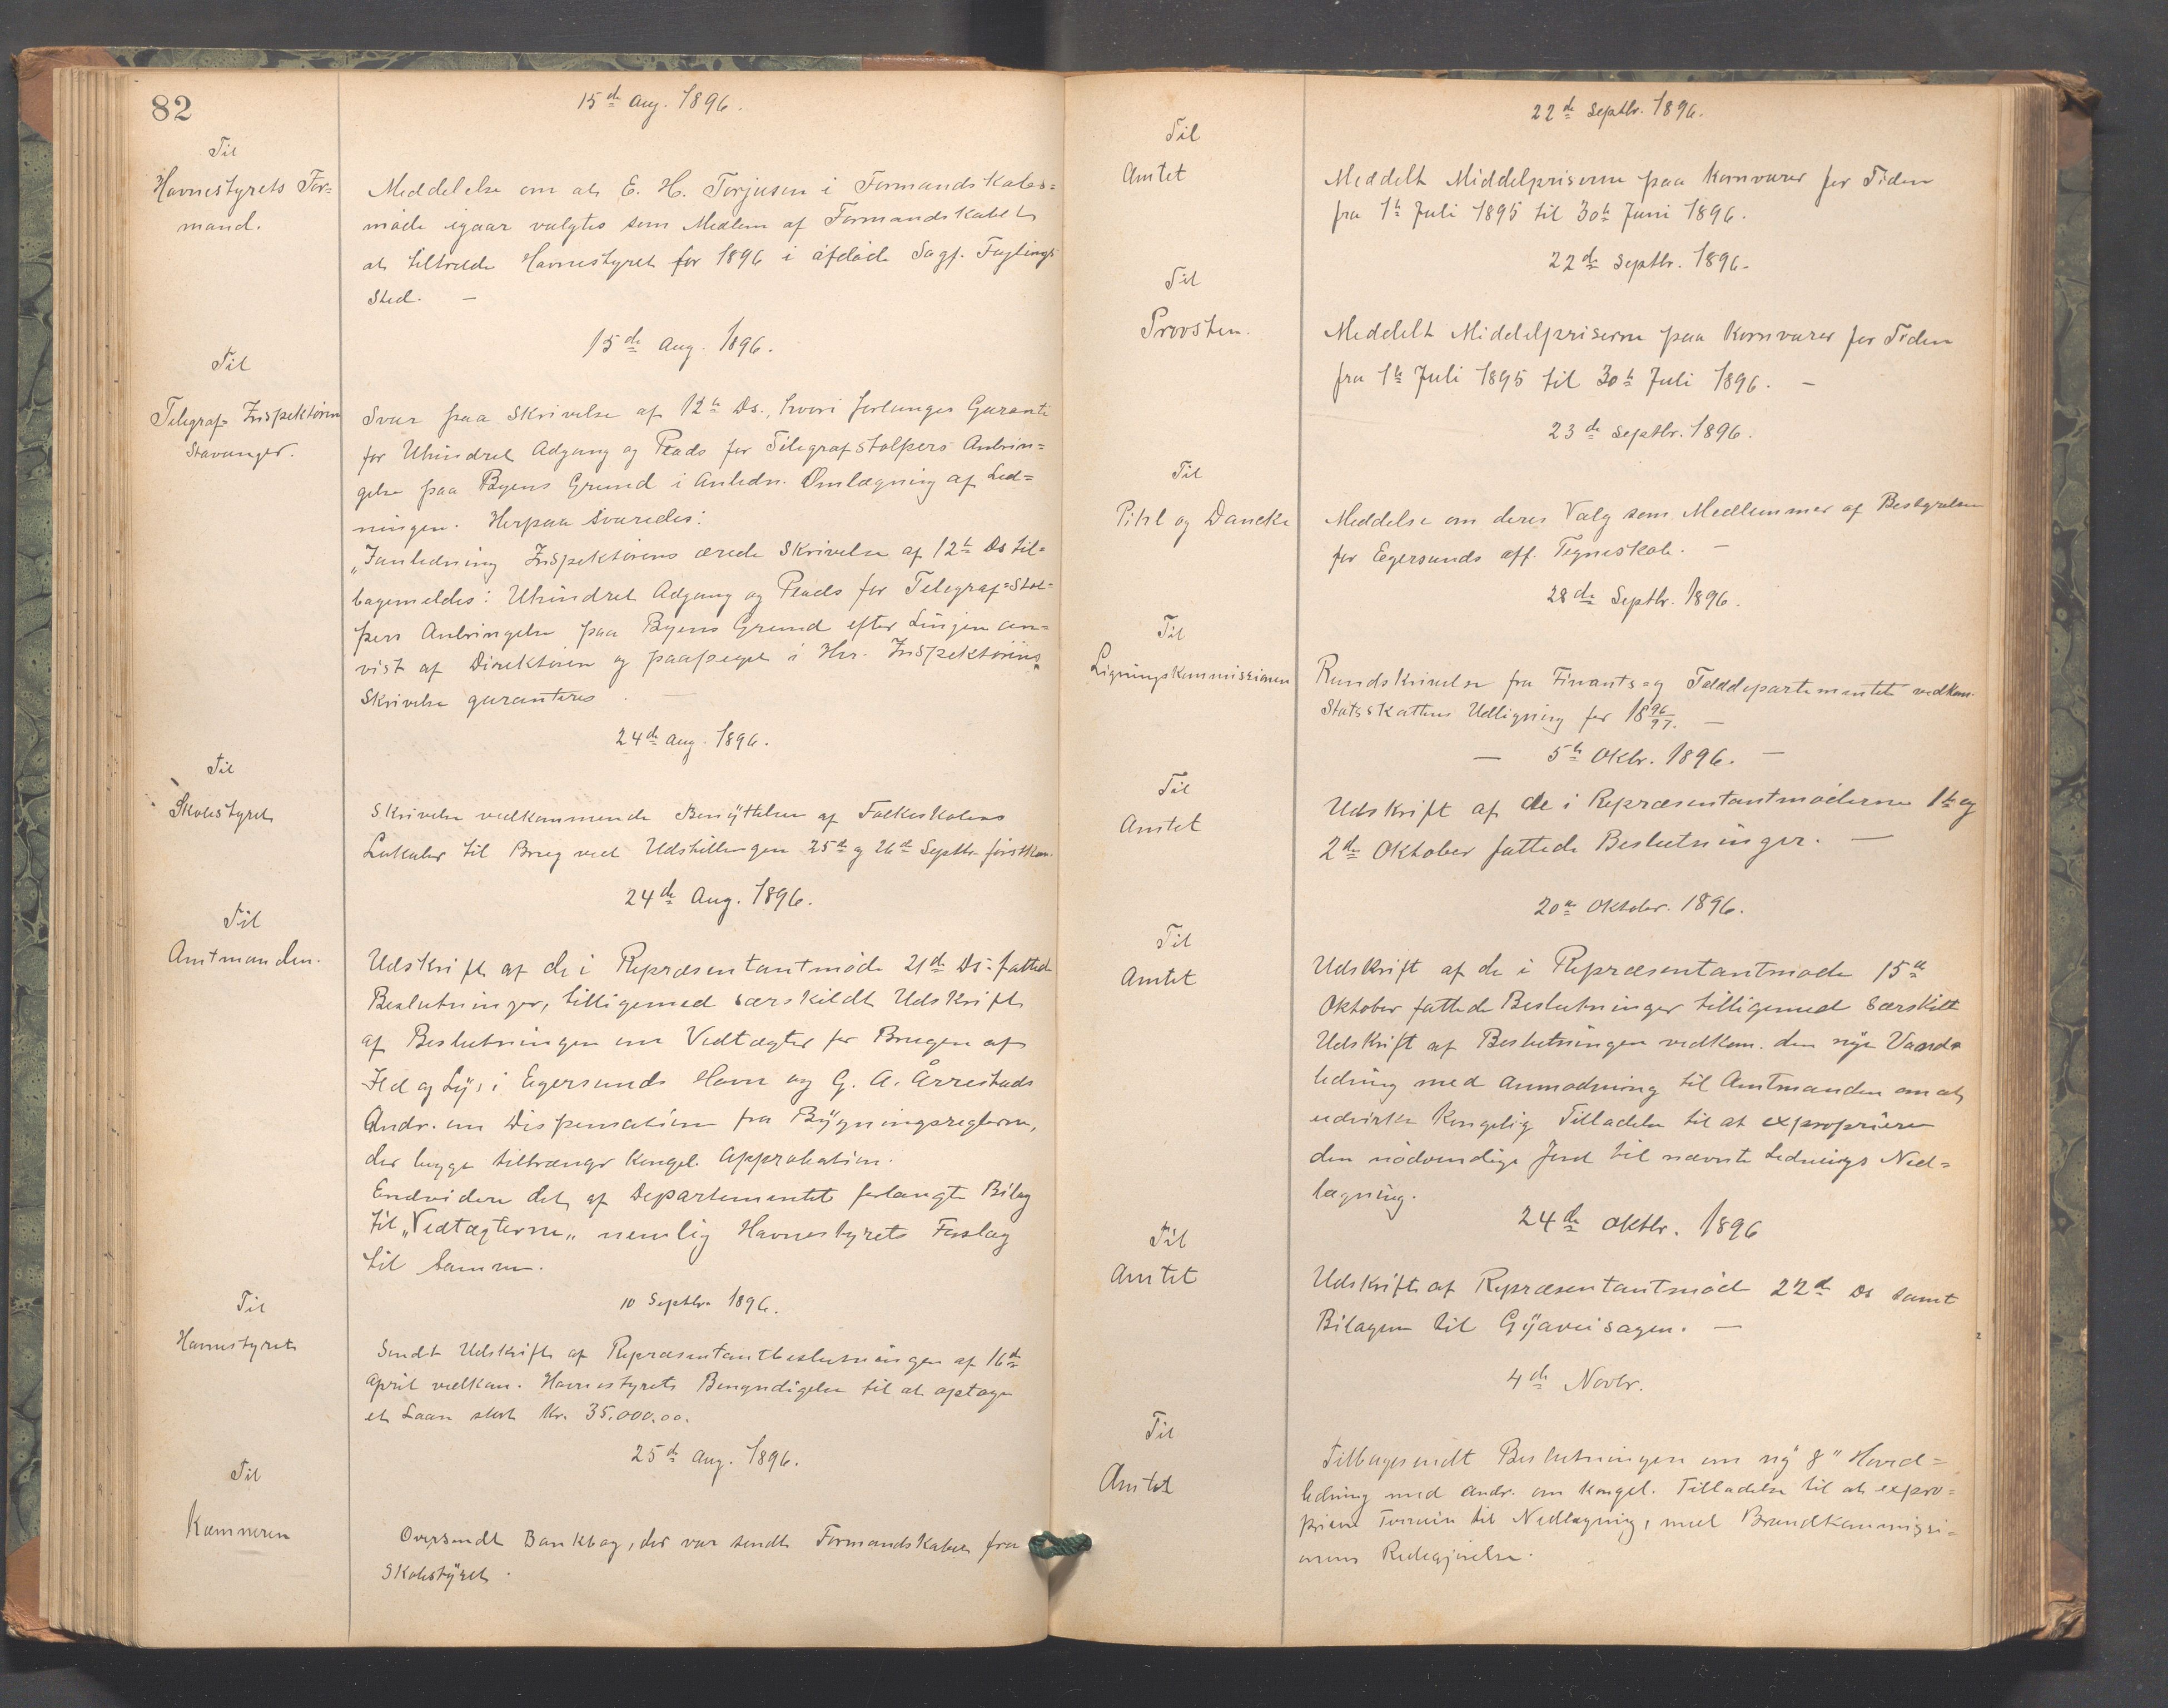 82
15de Aug. 1896.
Til
Havnestyrets For=
mand.
Meddelelse om at E. H. Torjusen i Formandskabs=
møde igaar valgtes som Medlem af Formandskabet
at tiltræde Havnestyret for 1896 i afdøde Sagf. Fuglings
Sted. —
15de Aug. 1896.
Til
Telegraf Inspektøren
Stavanger.
Svar paa Skrivelse af 12te Ds., hvori forlanges Garanti
for Uhindret Adgang og Plads for Telegrafstolpers Anbrin=
gelse paa Byens Grund i Anledn. Omlægning af Led=
ningen. Herpaa svaredes:
„I anledning Inspektørens ærede Skrivelse af 12te Ds til=
bagemeldes: Uhindret Adgang og Plads for Telegraf=Stol=
pers Anbringelse paa Byens Grund efter Linjen an=
vist af Direktøren og paapeget i Hr. Inspektørens
Skrivelse garanteres". —
24de Aug. 1896.
Til
Skolestyret
Skrivelse vedkommende Benyttelsen af Folkeskolens
Lokaler til Brug ved Udstillingen 25de og 26de Septbr. førstkom.
24de Aug. 1896.
Til
Amtmanden.
Udskrift af de i Repræsentantmøde 21de Ds. fattede
Beslutninger, tilligemed særskildt Udskrift
af Beslutningen om Vedtægter for Brugen af
Ild og Lys i Egersunds Havn og G. A. Årrestads
Andr. om Dispensation fra Bygningsreglerne,
der begge tiltrænger kongel. Approbation.
Endvidere det af Departementet forlangte Bilag
til „Vedtægterne„ nemlig Havnestyrets Forslag
til samme.
10 Septbr. 1896.
Til
Havnestyret
Sendt Udskrift af Repræsentantbeslutningen af 16de
April vedkom. Havnestyrets Bemyndigelse til at optage
et Laan stort Kr. 35.000.00.
25de Aug. 1896.
Til
Kæmneren
Oversendt Bankbog, der var sendt Formandskabet fra
Skolestyret.
22de Septbr. 1896.
Til
Amtet
Meddelt Middelpriserne paa Kornvarer for Tiden
fra 1te Juli 1895 til 30te Juni 1896.
22de Septbr. 1896.
Til
Provsten.
Meddelt Middelpriserne paa Kornvarer for Tiden
fra 1te Juli 1895 til 30te Juli 1896. —
23de Septbr. 1896.
Til
Pihl og Dancke
Meddelse om deres Valg som Medlemmer af Bestyrelsen
for Egersunds aff. Tegneskole. —
28de Septbr. 1896.
Til
Ligningskommissionen
Rundskrivelse fra Finants= og Tolddepartementet vedkom.
Statsskattens Udligning for 1896/97. —
— 5te Oktbr. 1896. —
Til
Amtet
Udskrift af de i Repræsentantmøderne 1te og
2de Oktober fattede Beslutninger. —
20de Oktober. 1896.
Til
Amtet
Udskrift af de i Repræsentantmøde 15de
Oktober fattede Beslutninger tilligemed særskilt
Udskrift af Beslutningen vedkom. den nye Vand=
ledning med Anmodning til Amtmanden om at
udvirke kongelig Tilladelse til at expropriere
den nødvendige Jord til nævnte Lednings Ned=
lægning.
24de Oktbr. 1896
Til
Amtet
Udskrift af Repræsentantmøde 22de Ds samt
Bilagene til Gyaveisagen. —
4de Novbr.
Til
Amtet
Tilbagesendt Beslutningen om ny 8" Hoved=
ledning med Andr. om kongel. Tilladelse til at expro=
priere Terrain til Nedlægning, med Brandkommissi=
onens Redegjørelse.